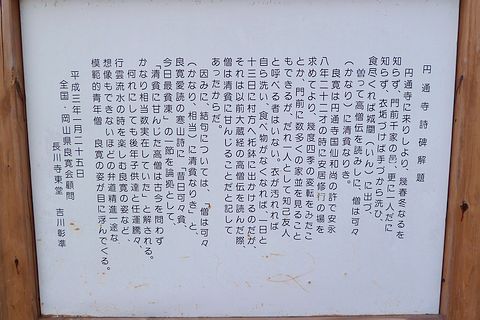 円通寺詩碑解題
円通寺に来りしより、幾春冬なるを
知らず、門前千家の邑、更に一人だに
知らず、衣垢づけば手づから洗ひ、
食尽くれば城闉(いん)に出づ、
曽って高僧伝を読みしに、僧は可々
(かなり)に清貧なりき。
良寛は円通寺国仙和尚の許で安永
八年二十二才の時に居修行の場を
求めてより、幾度四季の移転をみたこ
とか、門前に数多くの家並を見ること
もできるが、だれ一人として知己友人
と呼べる者はいない。衣が汚れれば
自ら洗い、食べ物がなくなれば、一日と
十三日に村方へ托鉢に出かけるのだが、
それは以前大蔵経の高僧伝を読んだ際、
僧は清貧に甘んじることだと記して
あったからだ。
因みに、結句については、「僧は可々
(かなり、相当)に清貧なりき」と、
良寛愛読の寒山詩に「昔日可々貧、
今日最貧凍」の一節を論拠として、
「清貧に甘んじた高僧は古今を問わず
かなり相当数実在していた」と解される。
何れにしても後年子供達と任運騰々、
行雲流水の時を楽しむ良寛の姿など、
想像もできないほどの弁道精進一途な
模範的青年僧、良寛の姿が目に浮んでくる。
平成三年一月二十五日
全国・岡山県良寛会顧問
長川寺東堂 吉川彰準